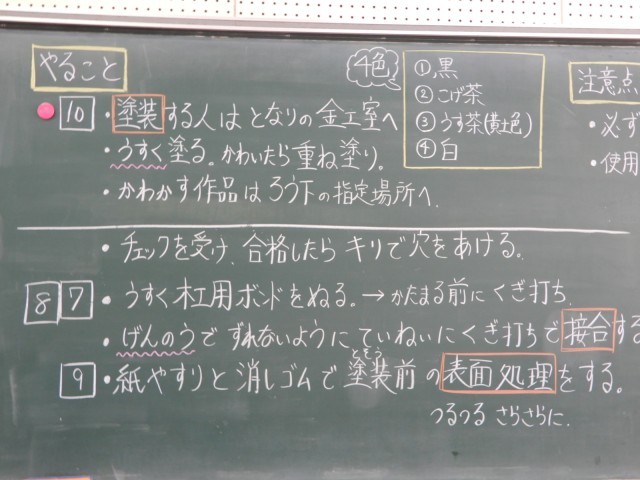 やること
4色
①黒
②こげ茶
③うす茶(黄土色)
④白
注意点
・必ず
・使用
10 ・塗装する人はとなりの金工室へ
・うすく塗る。かわいたら重ね塗り。
・かわかす作品はろう下の指定場所へ.
・チェックを受け、合格したらキリで穴をあける。
8 7 ・うすく木工用ボンドをぬる。→かたまる前にくぎ打ち.
・げんのうでずれないようにていねいにくぎ打ちで接合する
9 ・紙やすりと消しゴムで塗装前の表面処理をする。
とそう
つるつる さらさらに.